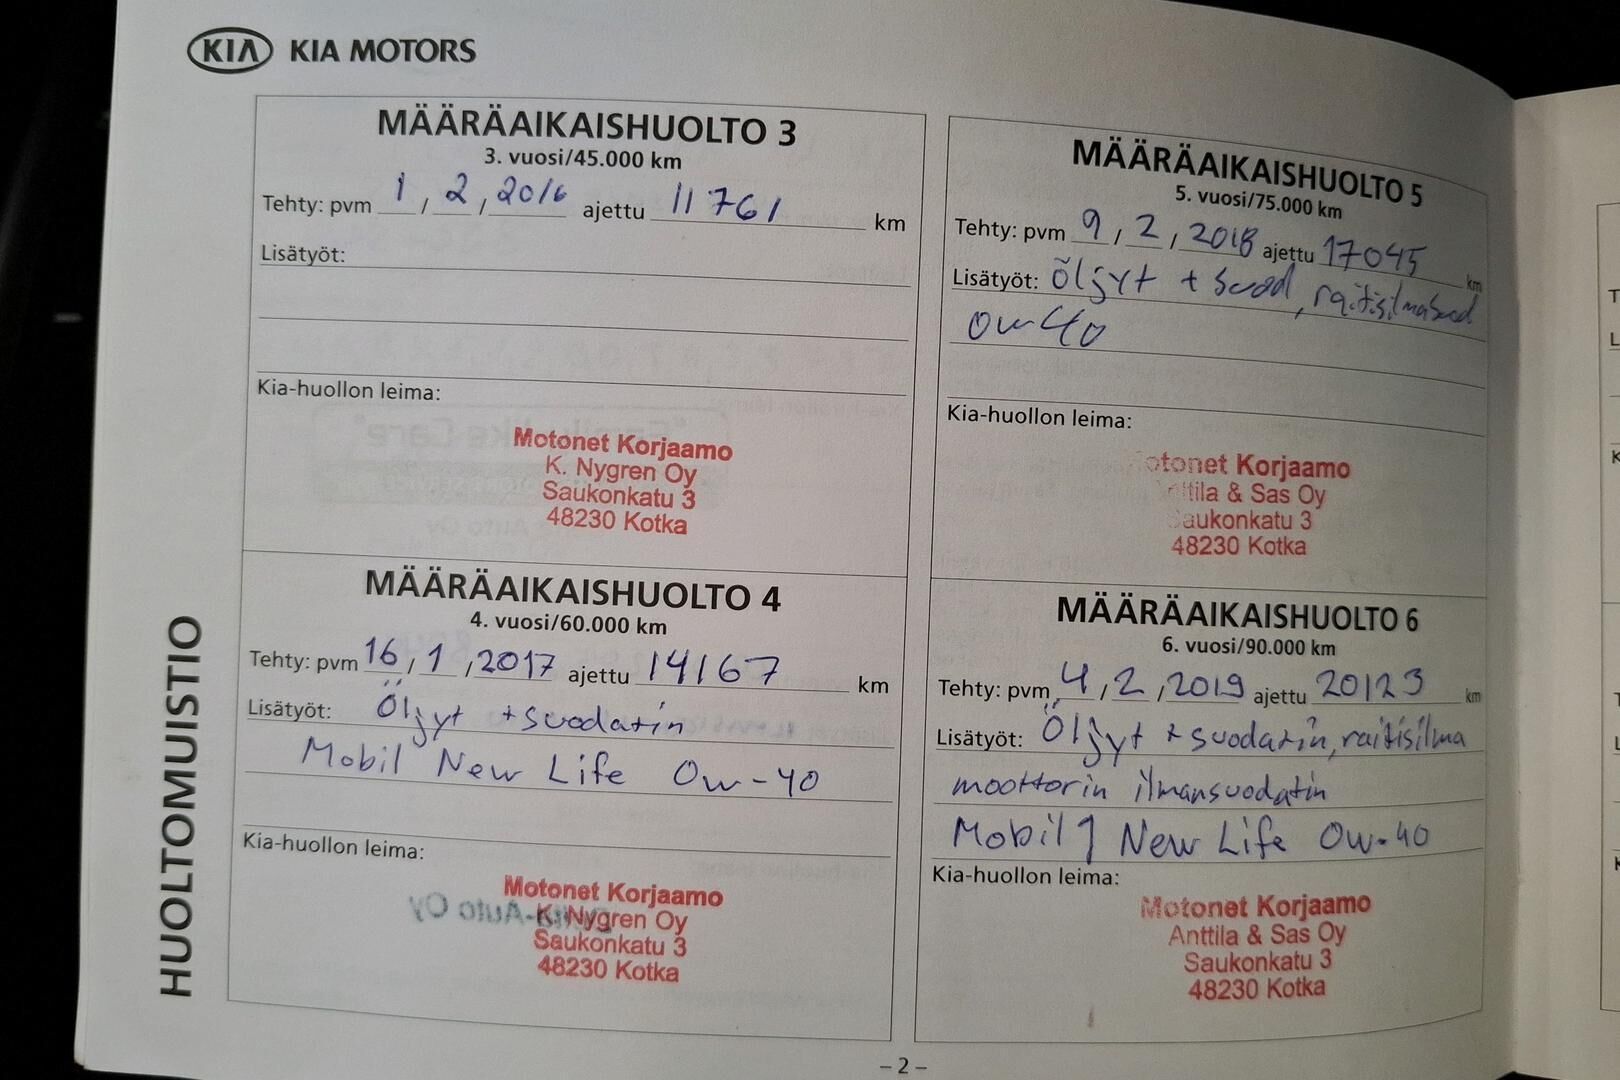 KIA KIA MOTORS
HUOLTOMUISTIO
MÄÄRÄAIKAISHUOLTO 3
3. vuosi/45.000 km
Tehty: pvm 1 / 2 / 2016 ajettu 11761 km
Lisätyöt:
Kia-huollon leima:
Motonet Korjaamo
K. Nygren Oy
Saukonkatu 3
48230 Kotka
MÄÄRÄAIKAISHUOLTO 4
4. vuosi/60.000 km
Tehty: pvm 16 / 1 / 2017 ajettu 14167 km
Lisätyöt: Öljyt + suodatin
Mobil New Life 0w-40
Kia-huollon leima:
Motonet Korjaamo
K. Nygren Oy
Saukonkatu 3
48230 Kotka
MÄÄRÄAIKAISHUOLTO 5
5. vuosi/75.000 km
Tehty: pvm 9 / 2 / 2018 ajettu 17045 km
Lisätyöt: öljyt + suod, raitisilmasuod
0w40
Kia-huollon leima:
otonet Korjaamo
ttila & Sas Oy
aukonkatu 3
48230 Kotka
MÄÄRÄAIKAISHUOLTO 6
6. vuosi/90.000 km
Tehty: pvm 4 / 2 / 2019 ajettu 20123 km
Lisätyöt: Öljyt + suodatin, raitisilma
moottorin ilmansuodatin
Mobil 1 New Life 0w-40
Kia-huollon leima:
Motonet Korjaamo
Anttila & Sas Oy
Saukonkatu 3
48230 Kotka
– 2 –